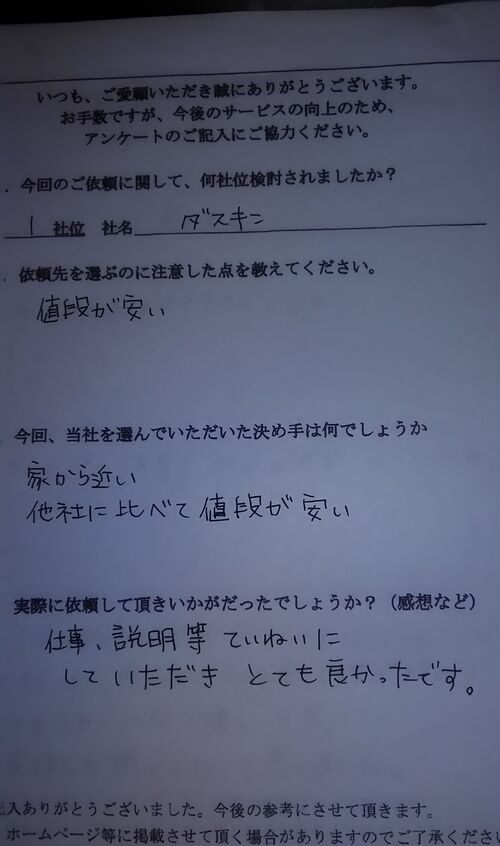 いつも、ご愛願いただき誠にありがとうございます。
お手数ですが、今後のサービスの向上のため、
アンケートのご記入にご協力ください。
. 今回のご依頼に関して、何社位検討されましたか？
1 社位 社名 ダスキン
. 依頼先を選ぶのに注意した点を教えてください。
値段が安い
今回、当社を選んでいただいた決め手は何でしょうか
家から近い
他社に比べて値段が安い
実際に依頼して頂きいかがだったでしょうか？（感想など）
仕事、説明等ていねいに
していただきとても良かったです。
入ありがとうございました。今後の参考にさせて頂きます。
ホームページ等に掲載させて頂く場合がありますのでご了承くださ